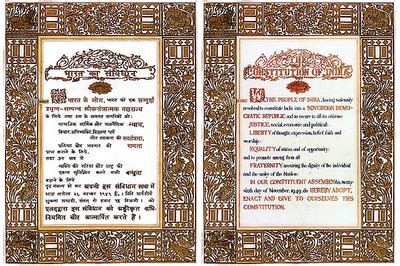 भारत का संविधान
भारत के लोग, भारत को एक सम्पूर्ण
प्रभुत्व-सम्पन्न लोकतंत्रात्मक गणराज्य
के लिये, तथा उस के समस्त नागरिकों को:
सामाजिक, आर्थिक और राजनैतिक न्याय,
विचार, अभिव्यक्ति, विश्वास, धर्म
और उपासना की स्वतंत्रता,
प्रतिष्ठा और अवसर की समता
प्राप्त कराने के लिये,
तथा उन सब में
व्यक्ति की गरिमा और राष्ट्र की
एकता सुनिश्चित करने वाली बन्धुता
बढ़ाने के लिये
दृढ़ संकल्प हो कर अपनी इस संविधान सभा में
आज तारीख २६ नवम्बर १९४९ ई. (मिति मार्गशीर्ष
शुक्ला सप्तमी, संवत् दो हजार छह विक्रमी) को
एतद्द्वारा इस संविधान को अंगीकृत, अधि-
नियमित और आत्मार्पित करते हैं।
THE
CONSTITUTION OF INDIA
WE, THE PEOPLE OF INDIA, having solemnly
resolved to constitute India into a SOVEREIGN DEMO-
CRATIC REPUBLIC and to secure to all its citizens:
JUSTICE, social, economic and political;
LIBERTY of thought, expression, belief, faith and
worship;
EQUALITY of status and of opportunity;
and to promote among them all
FRATERNITY assuring the dignity of the individual
and the unity of the Nation;
IN OUR CONSTITUENT ASSEMBLY this twenty-
sixth day of November, 1949, do HEREBY ADOPT,
ENACT AND GIVE TO OURSELVES THIS
CONSTITUTION.